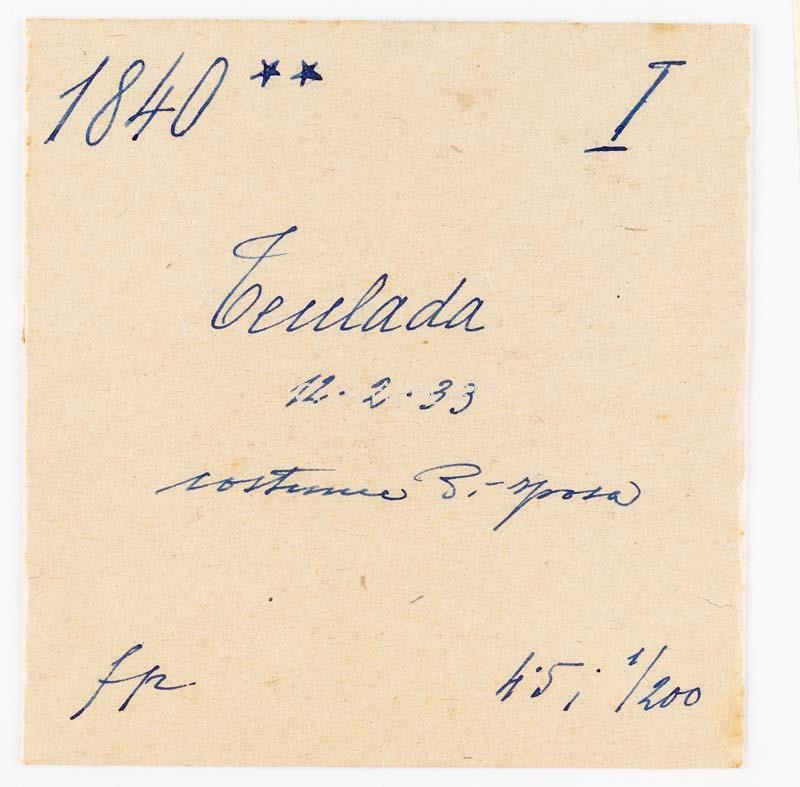 1840 ** I
Teulada
12.2.33
costume di sposa
fp.
4·5; 1/200